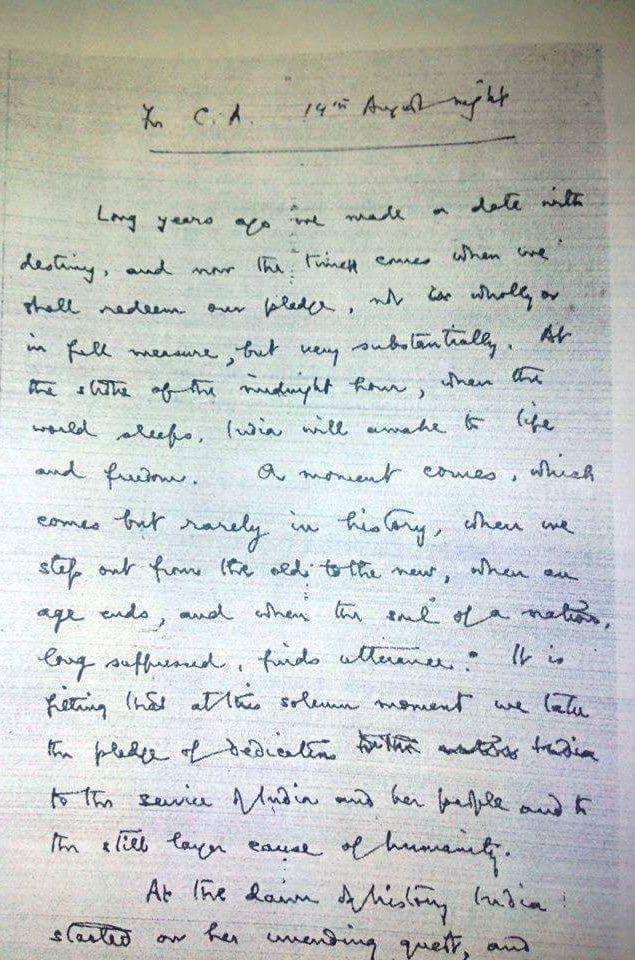 For C.A. 14th August night
Long years ago we made a date with
destiny, and now the time comes when we
shall redeem our pledge, not wholly or
in full measure, but very substantially. At
the stroke of the midnight hour, when the
world sleeps, India will awake to life
and freedom. A moment comes, which
comes but rarely in history, when we
step out from the old to the new, when an
age ends, and when the soul of a nation,
long suppressed, finds utterance. It is
fitting that at this solemn moment we take
the pledge of dedication India
to the service of India and her people and to
the still larger cause of humanity.
At the dawn of history India
started on her unending quest, and